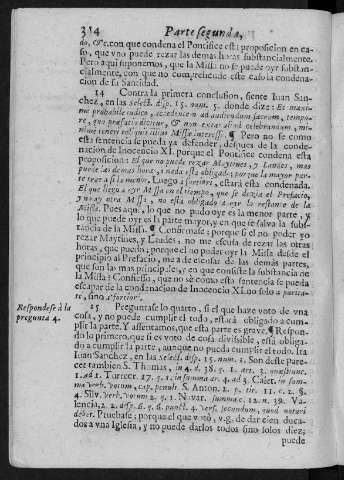 314 Parte segunda,
do, &c. con que condena el Pontifice esta proposicion en ca-
so, que vno puede rezar las demas horas substancialmente.
Pero aqui suponemos, que la Missa no se puede oyr substan-
cialmente, con que no comprehende este caso la condena-
cion de su Santidad.
14 Contra la primera conclusion, siente Iuan San-
chez, en las Select. disp. 15. num. 5. donde dize: Et maxi-
me probabile iudico, accedentem ad audiendum sacrum, tempo-
re, quo præfatio dicitur, & non extat aliud celebrandum, mi-
nime teneri reliquo illius Missæ interesse. ¶ Pero no se como
esta sentencia se pueda ya defender, despues de la conde-
nacion de Inocencio XI. porque el Pontifice condena esta
proposicion: El que no puede rezar Maytines, y Laudes, mas
puede las demas horas, a nada està obligado; porque la mayor par-
te trae a sí la menor. Luego à fortiori, estarà esta condenada.
El que llega a oyr Missa en el tiempo, que se dezia el Prefacio,
y no ay otra Missa, no està obligado a oyr lo restante de la
Missa. Pues aqui, lo que no pudo oyr es la menor parte, y
lo que puede oyr es la parte mayor, y en que se salva la subs-
tancia de la Missa. ¶ Confirmase: porque si el no poder yo
rezar Maytines, y Laudes, no me escusa de rezar las otras
horas, que puedo; porque el no poder oyr la Missa desde el
principio al Prefacio, me a de escusar de las demàs partes,
que son las mas principales, y en que consiste la substancia de
la Missa? Confiesso, que no sè como esta sentencia se pueda
escapar de la condenacion de Inocencio XI. no solo a paritate,
sino à fortiori.
Respondese à la
pregunta 4.
15 Preguntase lo quarto, si el que haze voto de vna
cosa, y no puede cumplir el todo, estarà obligado a cum-
plir la parte. Y assentamos, que esta parte es grave. ¶ Respon-
do lo primero, que si es voto de cosa divisible, està obliga-
do a cumplir la parte, aunque no pueda cumplir el todo. Ita
Iuan Sanchez, en las Select. disp. 15. num. 1. Son deste pare-
cer tambien S. Thomas, in 4. d. 38. q. 1. art. 3. quæstiunc.
1. ad 1. Turrecr. 27. q. 1. in summa ar. 4. ad 3. Caiet. in sum-
ma verb. votum, cap. penult. S. Anton. 2. p. tit. 11. c. 2. §.
4. Silv. verb. votum 2. q. 1. Navar. summa c. 12. n. 39. Va-
lencia, 2. 2. disp. 6. q. 6. punct. 4. vers. secundum, quod notari
debet. Pruebase; porque el que votò, v.g. de dar cien duca-
dos a vna Iglesia, y no puede darlos todos sino solos diez;
puede